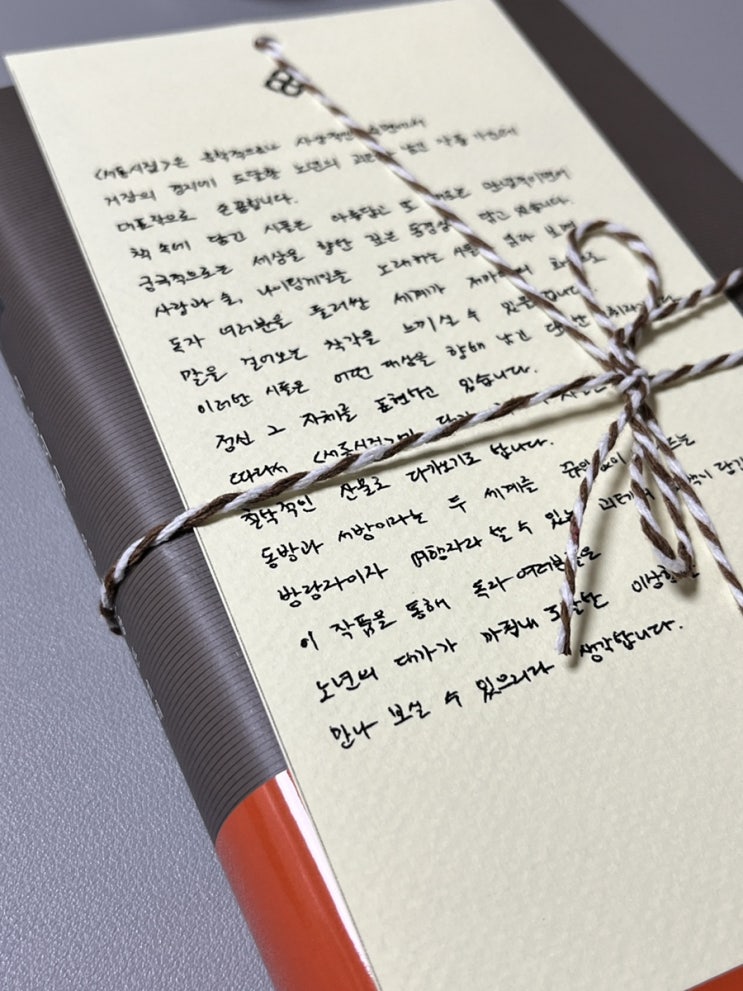 <서동시집>은 문학적으로나 사상적인 측면에서
거장의 경지에 도달한 노년의 괴테가 남긴 작품 가운데
대표작으로 손꼽힙니다.
책 속에 담긴 시들은 아름답고 또
궁극적으로는 세상을 향한 깊은 동경심 담고 있습니다.
사랑과 술, 나이팅게일을 노래하는 시들 보면
독자 여러분을 둘러싼 세계가 저마다의
말을 걸어오는 착각을 느끼실 수 있을 겁니다.
이러한 시들은 어떤 대상을 향해 남긴
정신 그 자체를 표현하고 있습니다.
따라서 <서동시집>이
철학적인 산물로 다가오기도 합니다.
동방과 서방이라는 두 세계를 끊임없이
방랑자이자 여행자라 할 수 있는 괴테의 담긴
이 작품을 통해 독자 여러분들은
노년의 대가가 마침내 도달한 이상향을
만나 보실 수 있으리라 생각합니다.